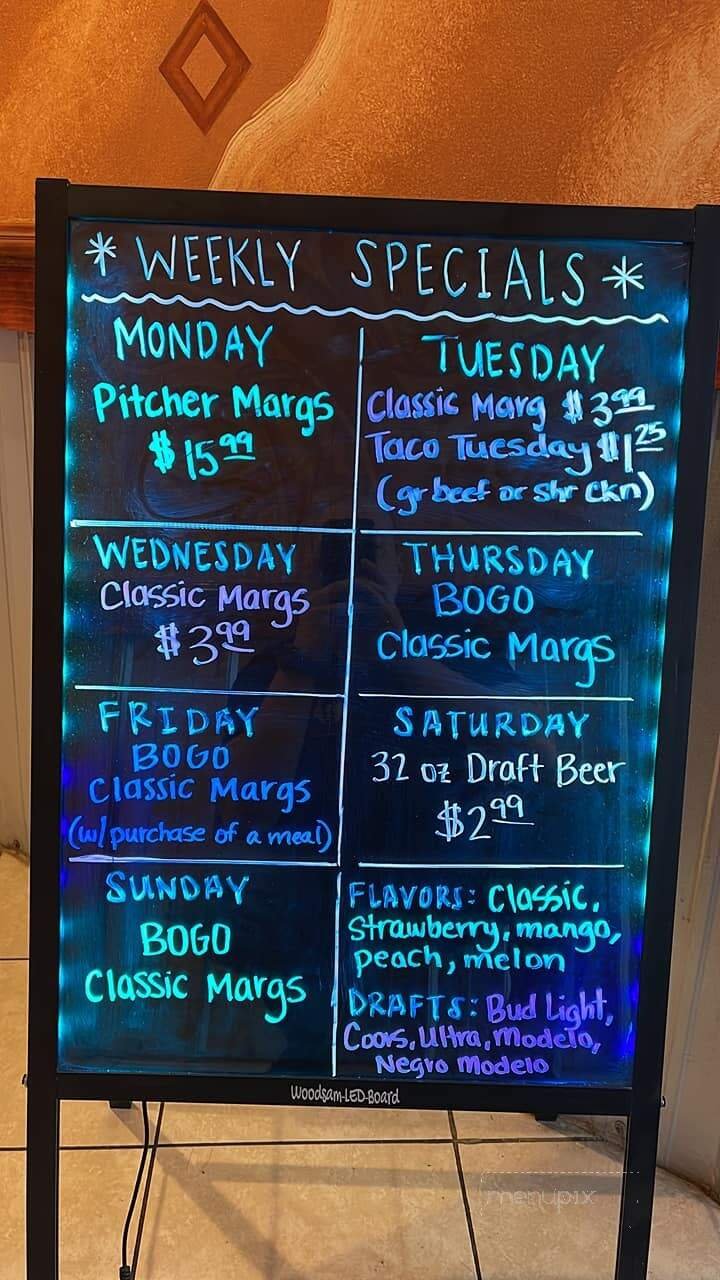 * WEEKLY SPECIALS *
MONDAY
Pitcher Margs
$15.99
TUESDAY
Classic Marg $3.99
Taco Tuesday $1.25
(gr beef or shr ckn)
WEDNESDAY
Classic Margs
$3.99
THURSDAY
BOGO
Classic Margs
FRIDAY
BOGO
Classic Margs
(w/purchase of a meal)
SATURDAY
32 oz Draft Beer
$2.99
SUNDAY
BOGO
Classic Margs
FLAVORS: Classic,
Strawberry, mango,
peach, melon
DRAFTS: Bud Light,
Coors, Ultra, Modelo,
Negro Modelo
Woodsam-LED-Board
menupix